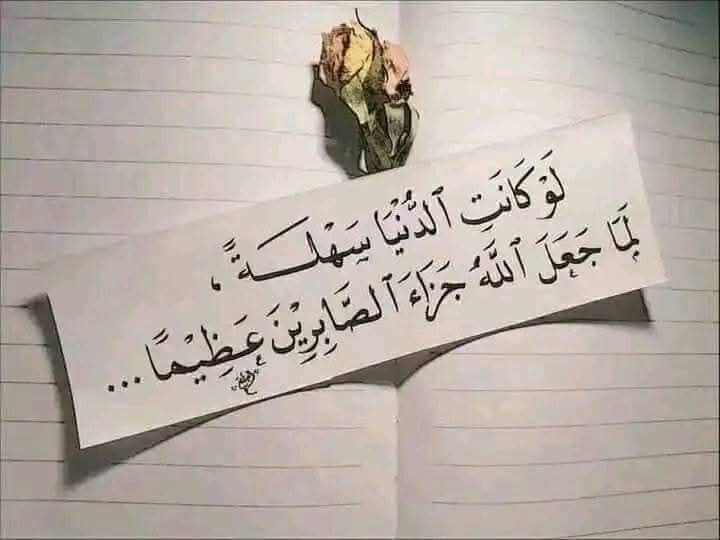 لَوْ كَانَتِ ٱلدُّنْيَا سَهْلَةً ،
لَمَا جَعَلَ ٱللَّهُ جَزَاءَ ٱلصَّابِرِيْنَ عَظِيْمًا ...